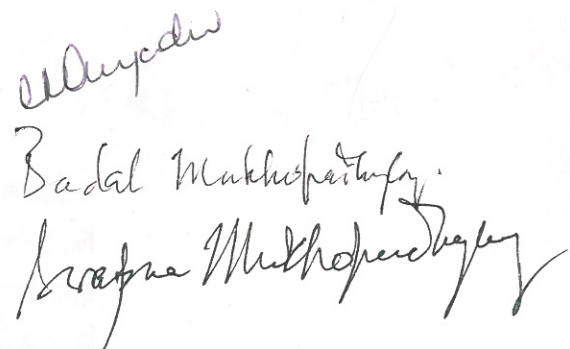 Badal Mukhopadhyay.
Swapna Mukhopadhyay